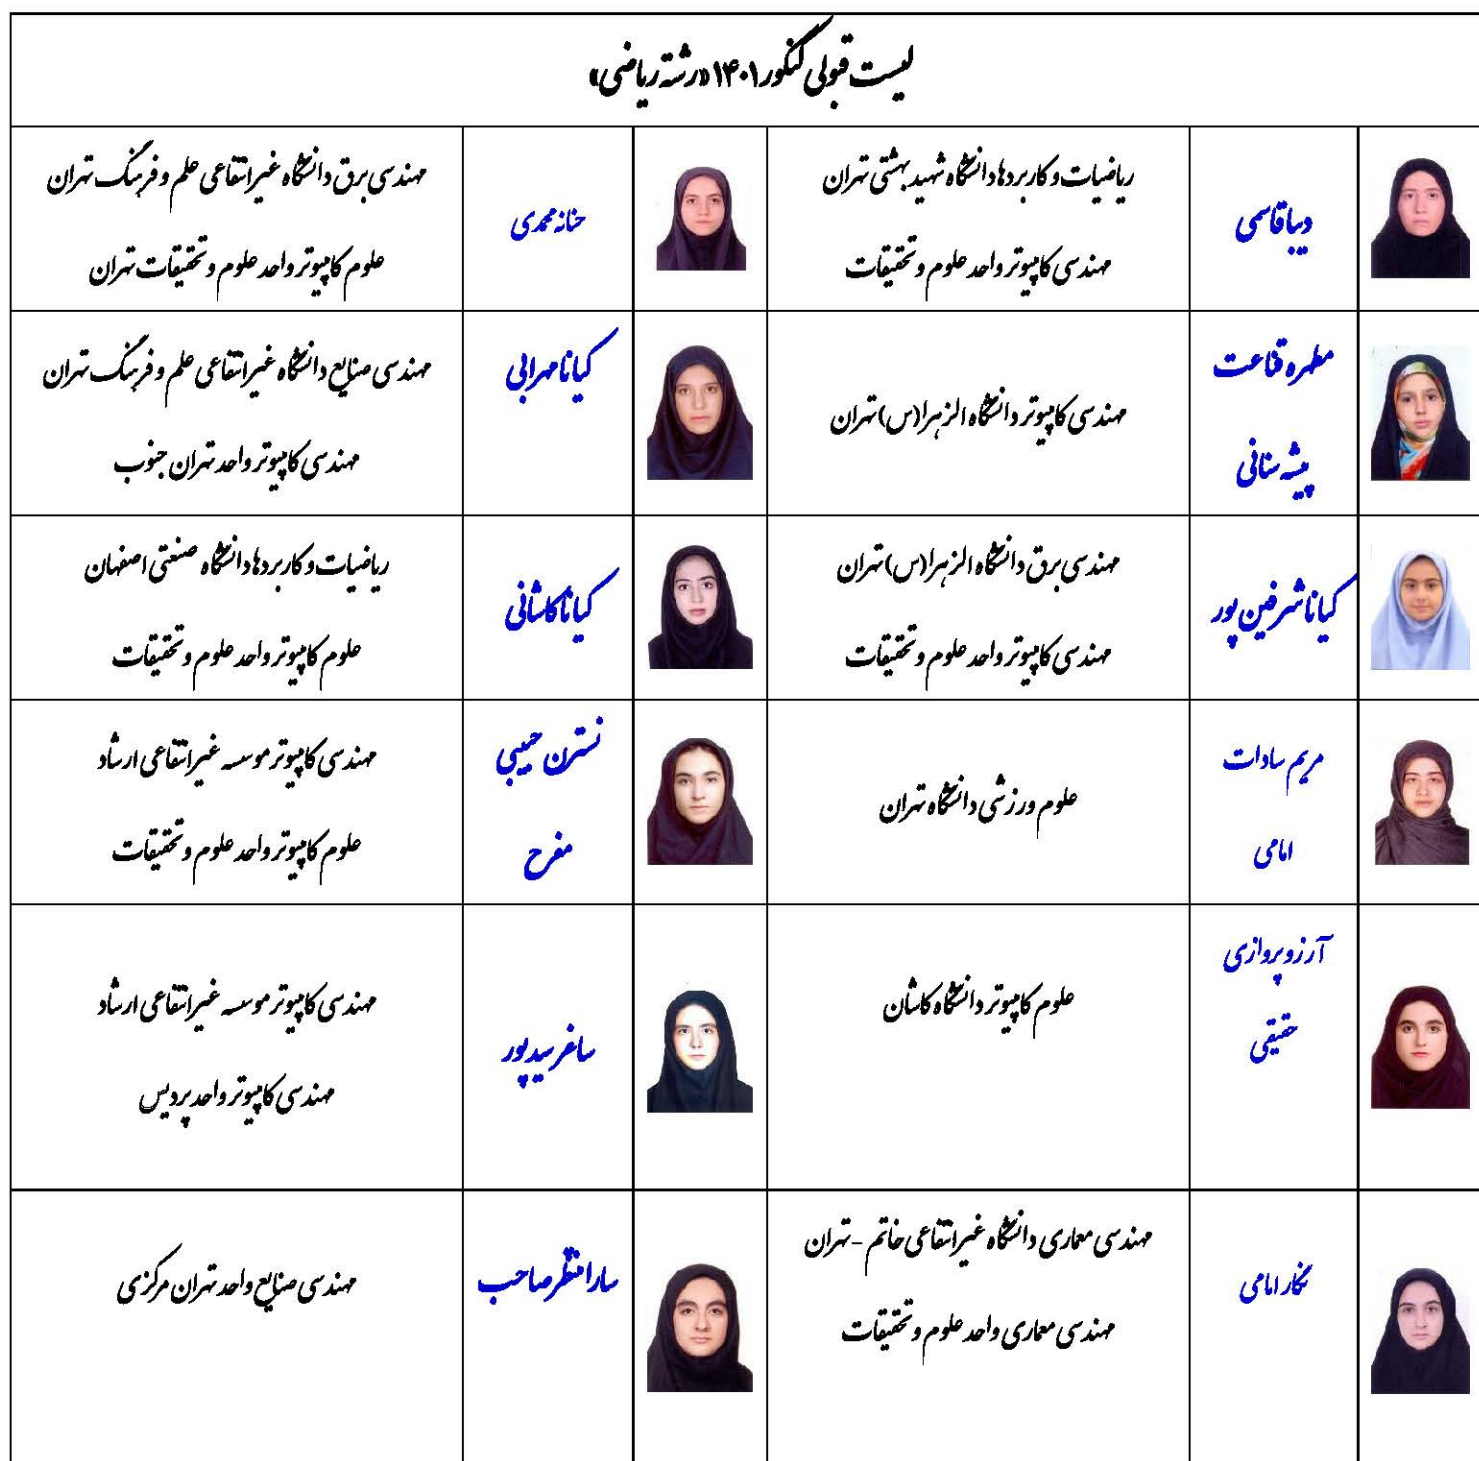 لیست قبولی کنکور ۱۴۰۱ «رشته ریاضی»
دیبا قاسمی
ریاضیات و کاربردها دانشگاه شهید بهشتی تهران
مهندسی کامپیوتر واحد علوم و تحقیقات
حنانه محمدی
مهندسی برق دانشگاه غیرانتفاعی علم و فرهنگ تهران
علوم کامپیوتر واحد علوم و تحقیقات تهران
مطهره قناعت
پیشه سنانی
مهندسی کامپیوتر دانشگاه الزهرا(س) تهران
کیانا مهرابی
مهندسی صنایع دانشگاه غیرانتفاعی علم و فرهنگ تهران
مهندسی کامپیوتر واحد تهران جنوب
کیانا شرفین پور
مهندسی برق دانشگاه الزهرا(س) تهران
مهندسی کامپیوتر واحد علوم و تحقیقات
کیانا کاشانی
ریاضیات و کاربردها دانشگاه صنعتی اصفهان
علوم کامپیوتر واحد علوم و تحقیقات
مریم سادات
امامی
علوم ورزشی دانشگاه تهران
نسترن حبیبی
مفرح
مهندسی کامپیوتر موسسه غیرانتفاعی ارشاد
علوم کامپیوتر واحد علوم و تحقیقات
آرزو پروازی
حقیقی
علوم کامپیوتر دانشگاه کاشان
ساغر سیدپور
مهندسی کامپیوتر موسسه غیرانتفاعی ارشاد
مهندسی کامپیوتر واحد پردیس
نگار امامی
مهندسی معماری دانشگاه غیرانتفاعی خاتم - تهران
مهندسی معماری واحد علوم و تحقیقات
سارا منتظر صاحب
مهندسی صنایع واحد تهران مرکزی